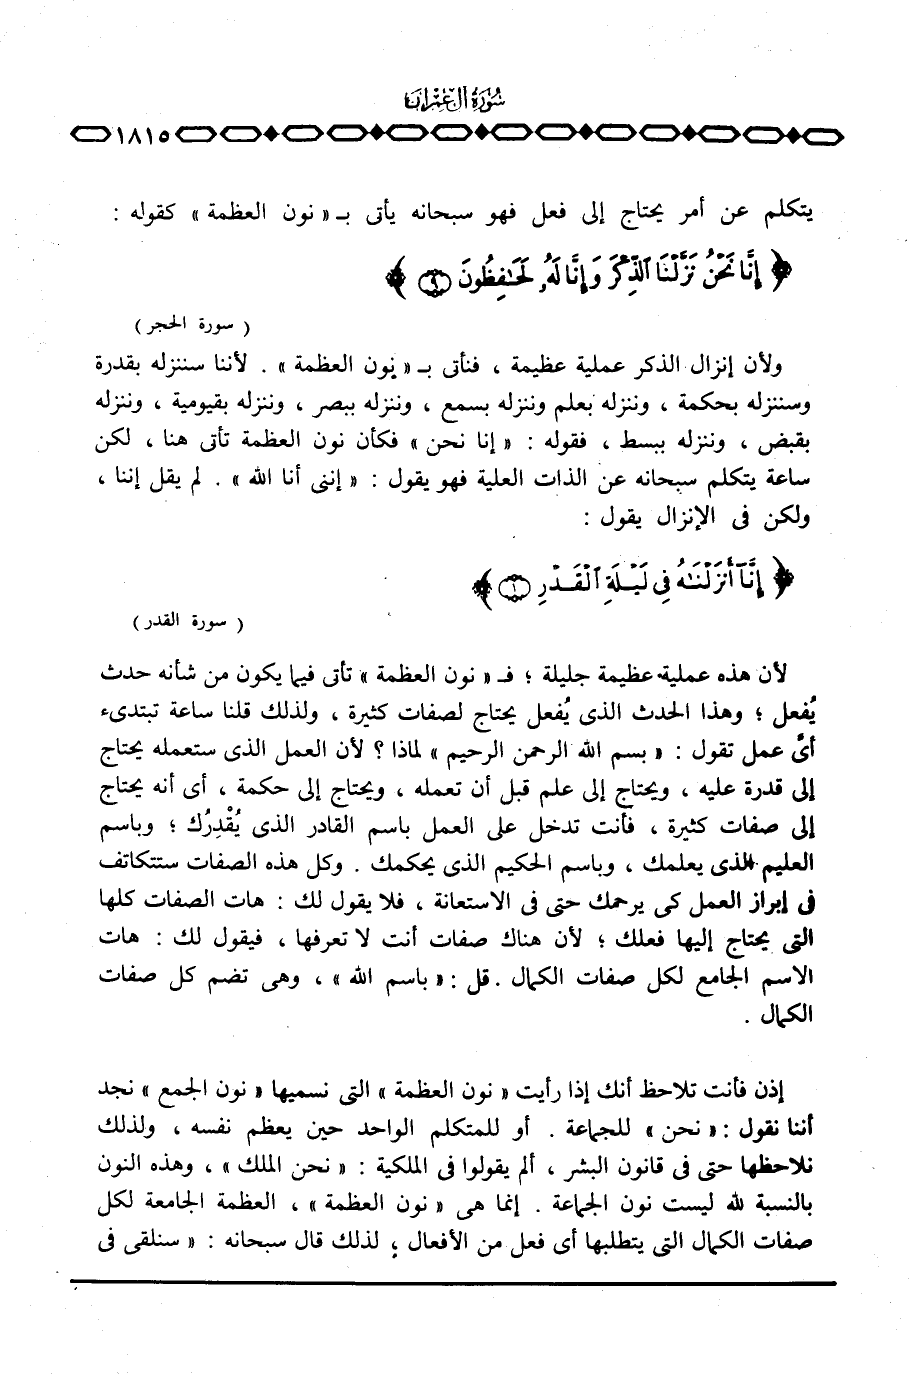 سُورَةُ آلِ عِمْرَانَ
١٨١٥
يتكلم عن أمر يحتاج إلى فعل فهو سبحانه يأتى بـ « نون العظمة » كقوله :
﴿ إِنَّا نَحْنُ نَزَّلْنَا ٱلذِّكْرَ وَإِنَّا لَهُۥ لَحَٰفِظُونَ ۝٩ ﴾
( سورة الحجر )
ولأن إنزال الذكر عملية عظيمة ، فنأتى بـ « نون العظمة » . لأننا سننزله بقدرة
وسننزله بحكمة ، وننزله بعلم وننزله بسمع ، وننزله ببصر ، وننزله بقيومية ، وننزله
بقبض ، وننزله ببسط ، فقوله : « إنا نحن » فكأن نون العظمة تأتى هنا ، لكن
ساعة يتكلم سبحانه عن الذات العلية فهو يقول : « إننى أنا الله » . لم يقل إننا ،
ولكن فى الإنزال يقول :
﴿ إِنَّآ أَنزَلْنَٰهُ فِى لَيْلَةِ ٱلْقَدْرِ ۝١ ﴾
( سورة القدر )
لأن هذه عملية عظيمة جليلة ؛ فـ « نون العظمة » تأتى فيما يكون من شأنه حدث
يُفعل ؛ وهذا الحدث الذى يُفعل يحتاج لصفات كثيرة ، ولذلك قلنا ساعة تبتدىء
أىَّ عمل تقول : « بسم الله الرحمن الرحيم » لماذا ؟ لأن العمل الذى ستعمله يحتاج
إلى قدرة عليه ، ويحتاج إلى علم قبل أن تعمله ، ويحتاج إلى حكمة ، أى أنه يحتاج
إلى صفات كثيرة ، فأنت تدخل على العمل باسم القادر الذى يُقْدِرُك ؛ وباسم
العليم الذى يعلمك ، وباسم الحكيم الذى يحكمك . وكل هذه الصفات ستتكاتف
فى إبراز العمل كى يرحمك حتى فى الاستعانة ، فلا يقول لك : هات الصفات كلها
التى يحتاج إليها فعلك ؛ لأن هناك صفات أنت لا تعرفها ، فيقول لك : هات
الاسم الجامع لكل صفات الكمال . قل : « باسم الله » ، وهى تضم كل صفات
الكمال .
إذن فأنت تلاحظ أنك إذا رأيت « نون العظمة » التى نسميها « نون الجمع » نجد
أننا نقول : « نحن » للجماعة . أو للمتكلم الواحد حين يعظم نفسه ، ولذلك
نلاحظها حتى فى قانون البشر ، ألم يقولوا فى الملكية : « نحن الملك » ، وهذه النون
بالنسبة لله ليست نون الجماعة . إنما هى « نون العظمة » ، العظمة الجامعة لكل
صفات الكمال التى يتطلبها أى فعل من الأفعال ؛ لذلك قال سبحانه : « سنلقى فى